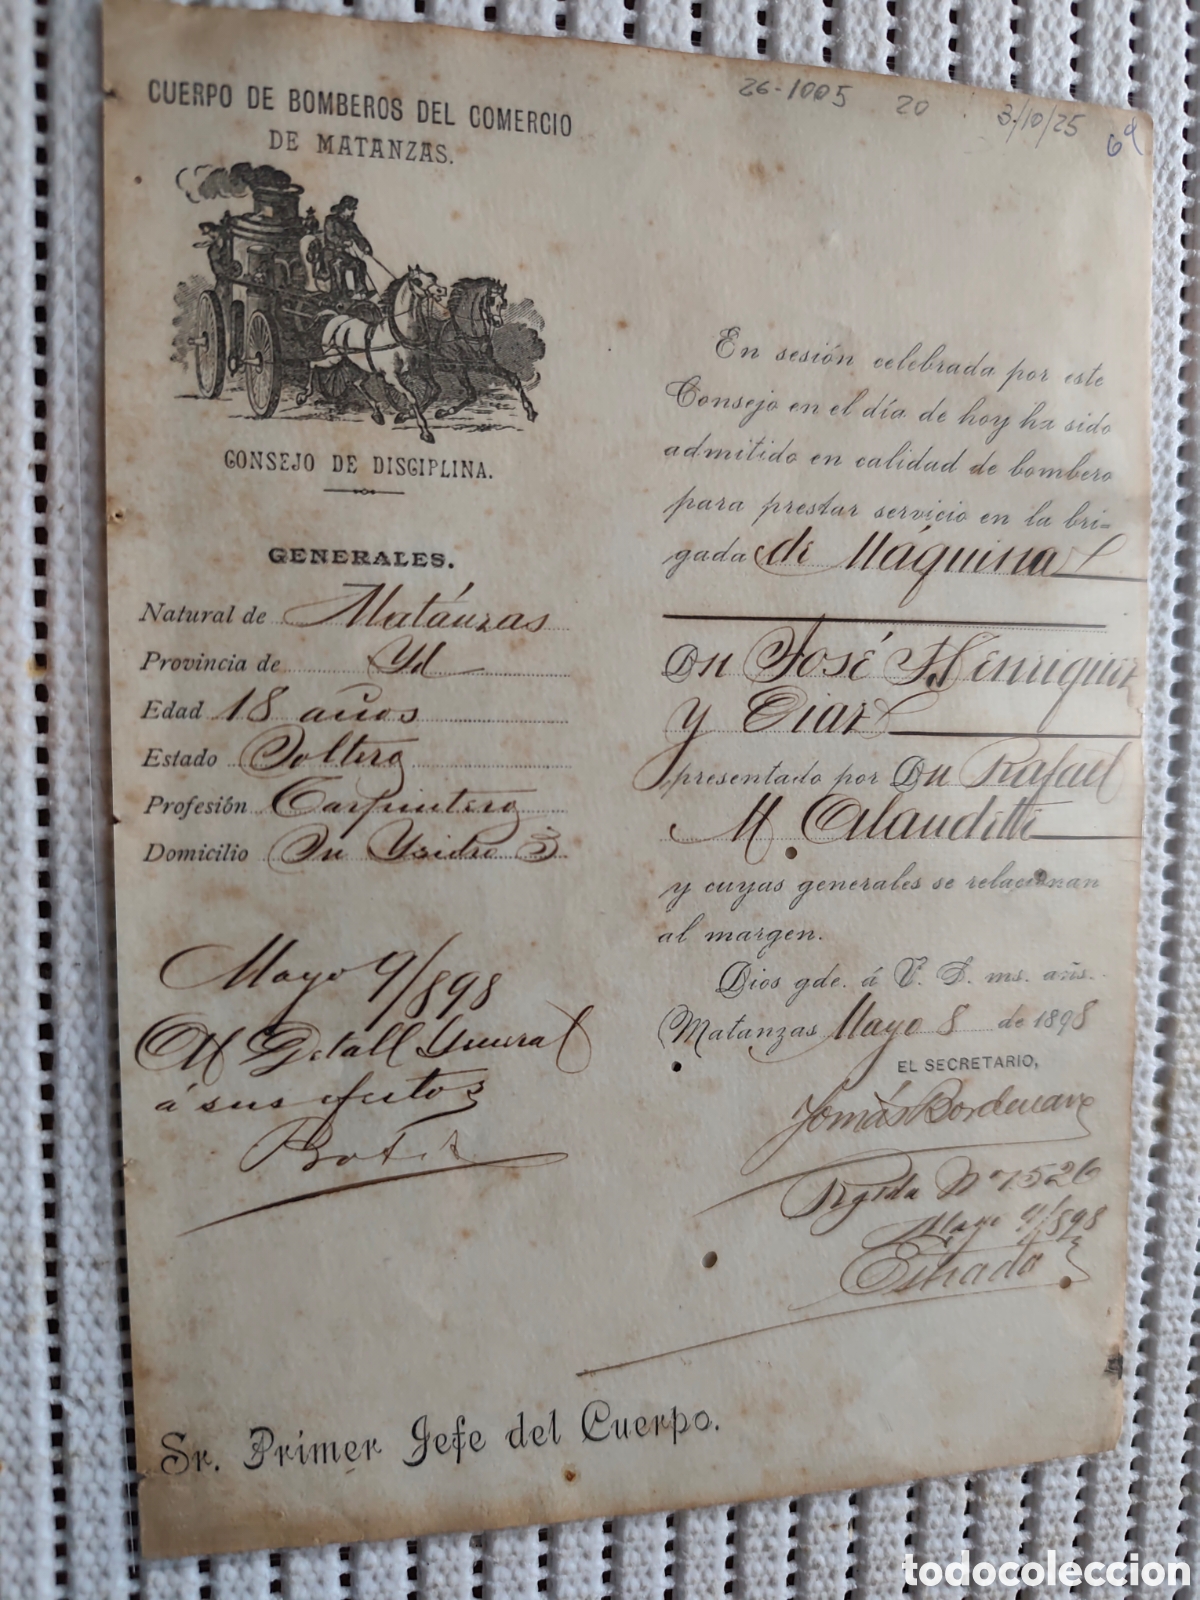 26-1005 20 3/10/25
CUERPO DE BOMBEROS DEL COMERCIO
DE MATANZAS.
CONSEJO DE DISCIPLINA.
GENERALES.
Natural de Matánzas
Provincia de Yd
Edad 18 años
Estado Soltero
Profesión Carpintero
Domicilio Sn Ysidro 3
Mayo 9/898
Al Detall General
á sus efectos
En sesión celebrada por este
Consejo en el día de hoy ha sido
admitido en calidad de bombero
para prestar servicio en la bri-
gada de Máquina
Dn José Henriquez
y Diaz
presentado por Dn Rafael
M.
y cuyas generales se relacionan
al margen.
Dios gde. á V. S. ms. añs.
Matanzas Mayo 8 de 1898
EL SECRETARIO,
Tomás Bordenave
Rgtda Nº 7526
Mayo 9/898
Estrada
Sr. Primer Jefe del Cuerpo.
todocoleccion